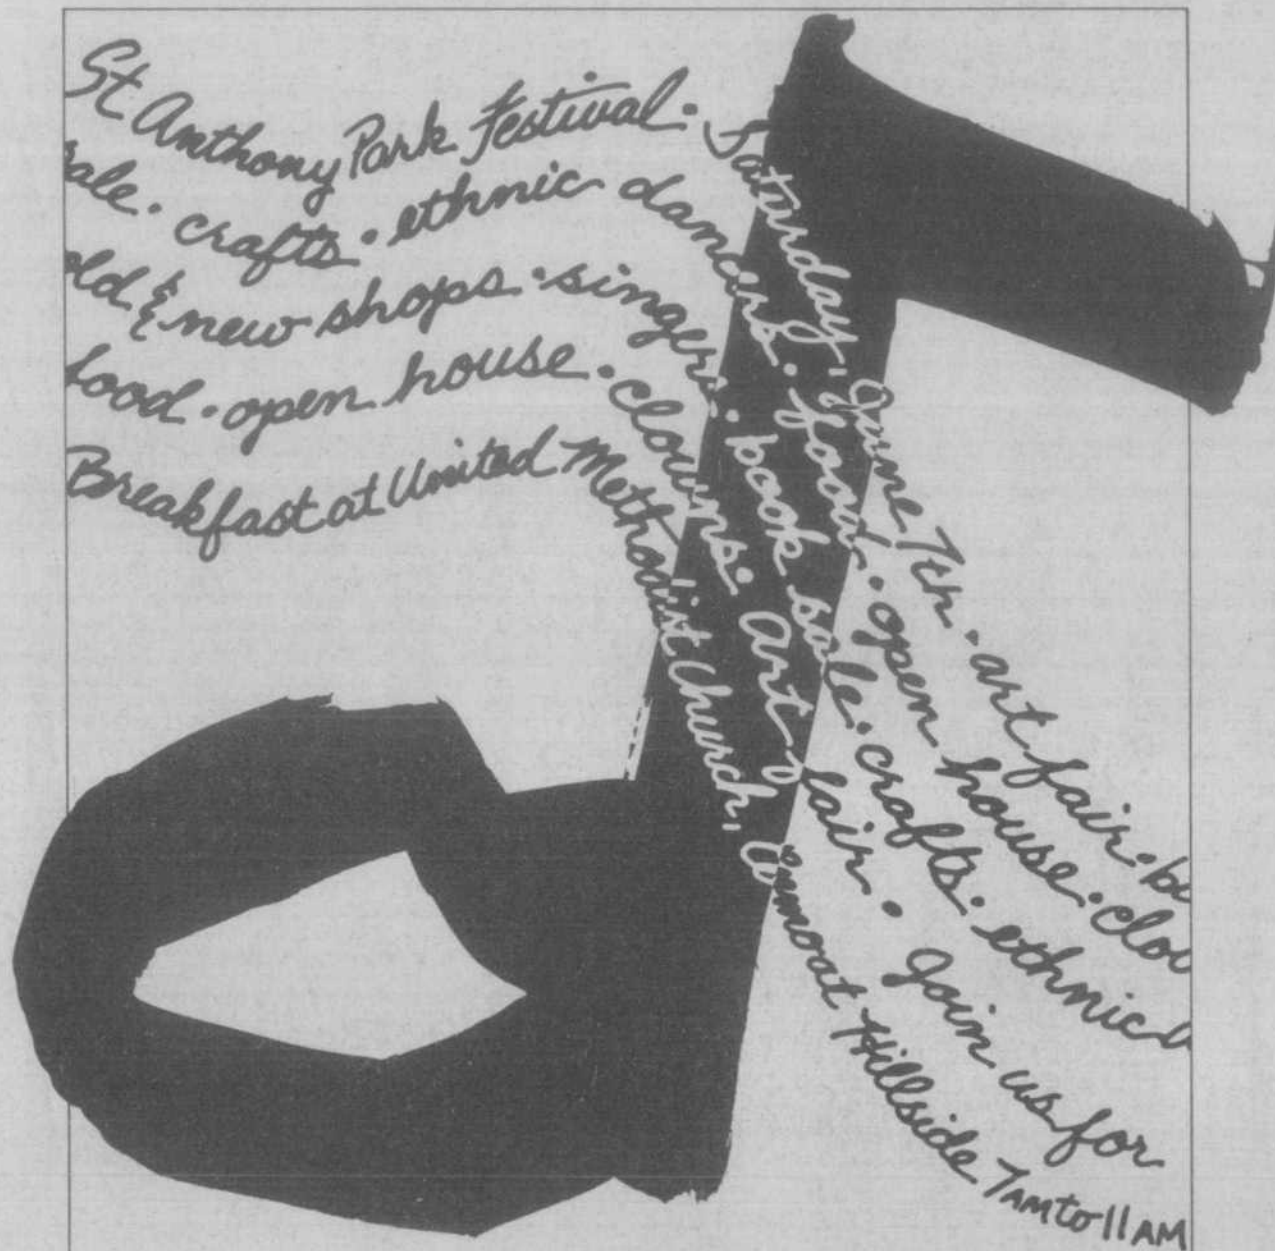 St Anthony Park Festival · Saturday, June 7th · art fair · bo
sale · crafts · ethnic dancers · food · open house · clow
old & new shops · singers · book sale · crafts · ethnic d
food · open house · clowns · Art fair · Join us for
Breakfast at United Methodist Church, Como at Hillside 7AM to 11AM